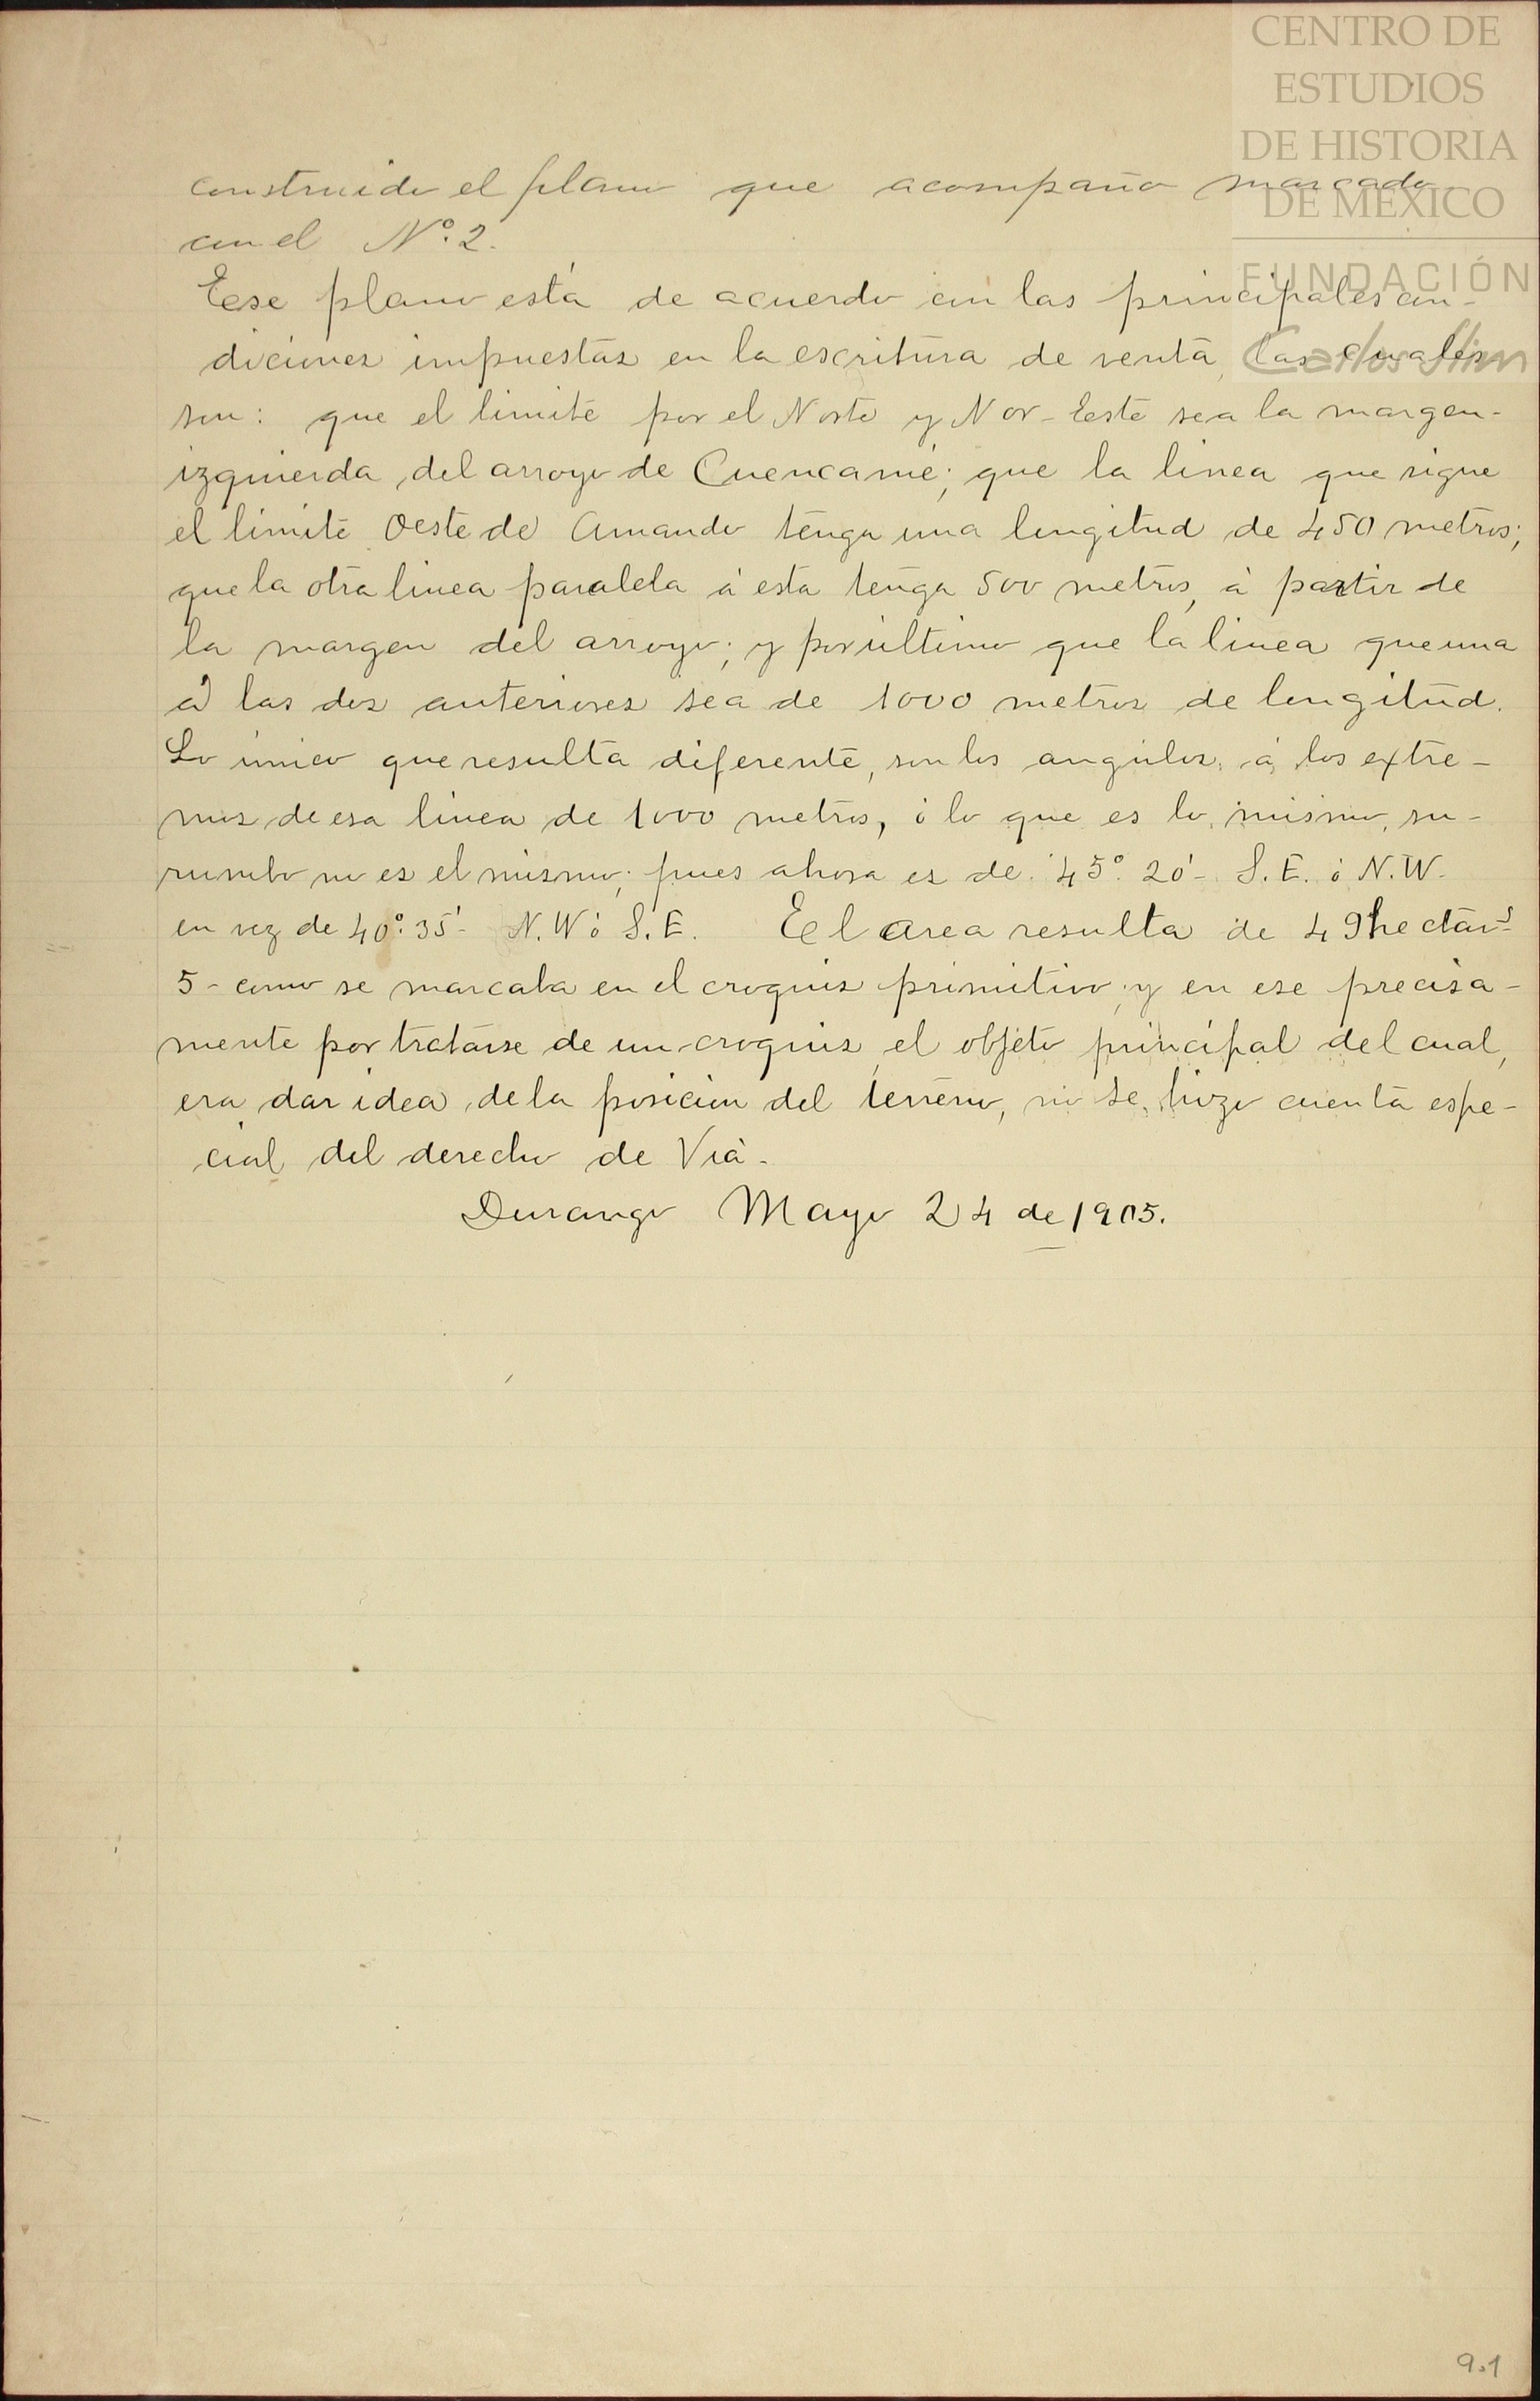 CENTRO DE
ESTUDIOS
DE HISTORIA
DE MÉXICO
FUNDACIÓN
Carlos Slim
construido el plano que acompaño marcado
con el Nº. 2.
Ese plano está de acuerdo con las principales con-
diciones impuestas en la escritura de venta, las cuales
son: que el limite por el Norte y Nor-Este sea la margen-
izquierda del arroyo de Cuencamé; que la linea que sigue
el limite Oeste de Amando tenga una longitud de 450 metros;
que la otra linea paralela á esta tenga 500 metros, á partir de
la margen del arroyo; y por ultimo que la linea que una
á las dos anteriores sea de 1000 metros de longitud.
Lo único que resulta diferente, son los angulos, á los extre-
mos de esa linea de 1000 metros, ó lo que es lo mismo, su-
rumbo no es el mismo; pues ahora es de 45º 20' - S.E. ó N.W.
en vez de 40º 35' - N.W ó S.E. El area resulta de 49 hectars
5 - como se marcaba en el croquis primitivo; y en ese precisa-
mente por tratarse de un croquis, el objeto principal del cual,
era dar idea de la posicion del terreno, no se hizo cuenta espe-
cial del derecho de Via.
Durango Mayo 24 de 1905.
9.1